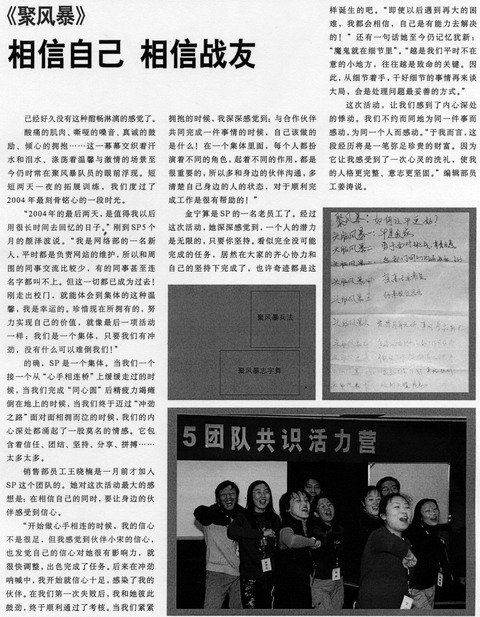 《聚风暴》
相信自己 相信战友
已经好久没有这种酣畅淋漓的感觉了。
酸痛的肌肉、嘶哑的嗓音、真诚的鼓
励、倾心的拥抱……这一幕幕交织着汗
水和泪水、涤荡着温馨与激情的场景至
今仍时常在聚风暴队员的眼前浮现。短
短两天一夜的拓展训练，我们度过了
2004年最刻骨铭心的一段时光。
“2004年的最后两天，是值得我以后
用很长时间去回忆的日子。”刚到SP5个
月的颜泽波说。“我是网络部的一名新
人，平时都是负责网站的维护，所以和周
围的同事交流比较少，有的同事甚至连
名字都叫不上。但这一切都已成为过去！
刚走出校门，就能体会到集体的这种温
馨，我是幸运的。珍惜现在所拥有的，努
力实现自己的价值，就像最后一项活动
一样：我们是一个集体，只要我们有冲
劲，没有什么可以难倒我们！”
的确，SP是一个集体。当我们一个
接一个从“心手相连桥”上缓缓走过的时
候，当我们完成“同心圆”后精疲力竭瘫
倒在地上的时候，当我们终于迈过“冲劲
之路”面对面相拥而泣的时候，我们的内
心深处都涌起了一股莫名的情感。它包
含着信任、团结、坚持、分享、拼搏……
太多太多。
销售部员工王晓楠是一月前才加入
SP这个团队的。她对这次活动最大的感
想是：在相信自己的同时，要让身边的伙
伴感受到信心。
“开始做心手相连的时候，我的信心
不是很足，但我感觉到伙伴小宋的信心，
也发觉自己的信心对她很有影响力，就
很快调整，出色完成了任务。后来在冲劲
呐喊中，我开始就信心十足，感染了我的
伙伴。在我们第一次失败后，我和她彼此
鼓劲，终于顺利通过了考核。当我们紧紧
拥抱的时候，我深深感觉到：与合作伙伴
共同完成一件事情的时候，自己该做的
是什么！在一个集体里面，每个人都扮
演着不同的角色，起着不同的作用，都是
很重要的，所以多和身边的伙伴沟通，多
清楚自己身边的人的状态，对于顺利完
成工作是很有帮助的！”
金宁算是SP的一名老员工了。经过
这次活动，她深深感觉到，一个人的潜力
是无限的，只要你坚持。看似完全没可能
完成的任务，居然在大家的齐心协力和
自己的坚持下完成了，也许奇迹都是这
样诞生的吧。“即使以后遇到再大的困
难，我都会相信，自己是有能力去解决
的！”还有一句话她至今仍记忆犹新：
“魔鬼就在细节里”。“越是我们平时不在
意的小地方，往往越是致命的关键。因
此，从细节着手，干好细节的事情再来谈
大局，会是处理问题最妥善的方式。”
这次活动，让我们感到了内心深处
的悸动。我们不约而同地为同一件事而
感动，为同一个人而感动。“于我而言，这
段经历将是一笔弥足珍贵的财富。因为
它让我感受到了一次心灵的洗礼，使我
的人格更完整，意志更坚固。”编辑部员
工姜涛说。
聚风暴兵法
聚风暴忠字舞
5团队共识活力营